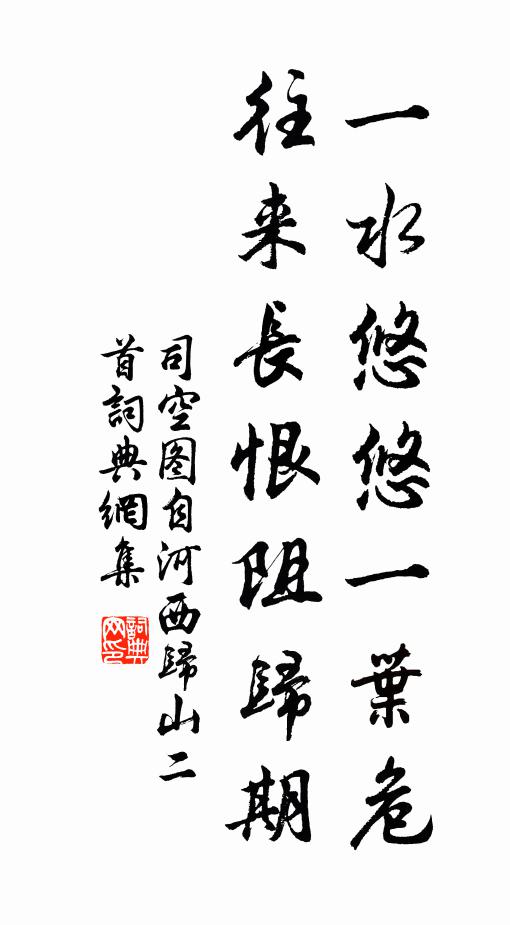 一水悠悠一葉危
往来長恨阻歸期
司空图自河西歸山二
首詞典網集
詞典网印